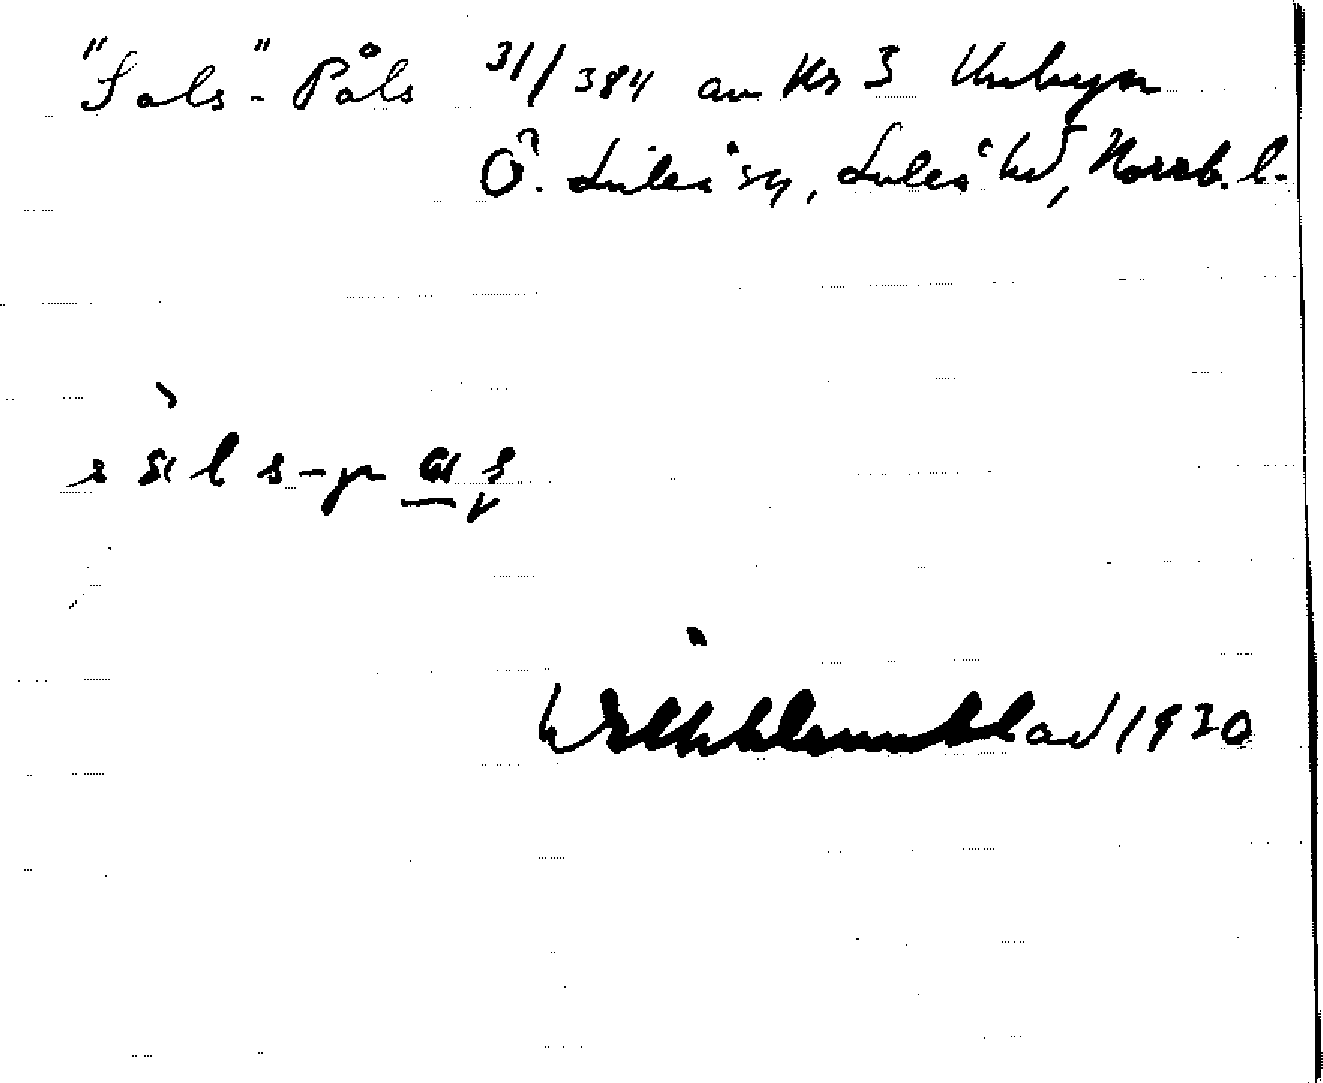 "Sals"-Påls 31/384 av Nr 3 Unbyn
Ö. Luleå sn, Luleå hd, Norrb. l.
sàls-pa̲ʂ
Wilh. Unnerblad 1920